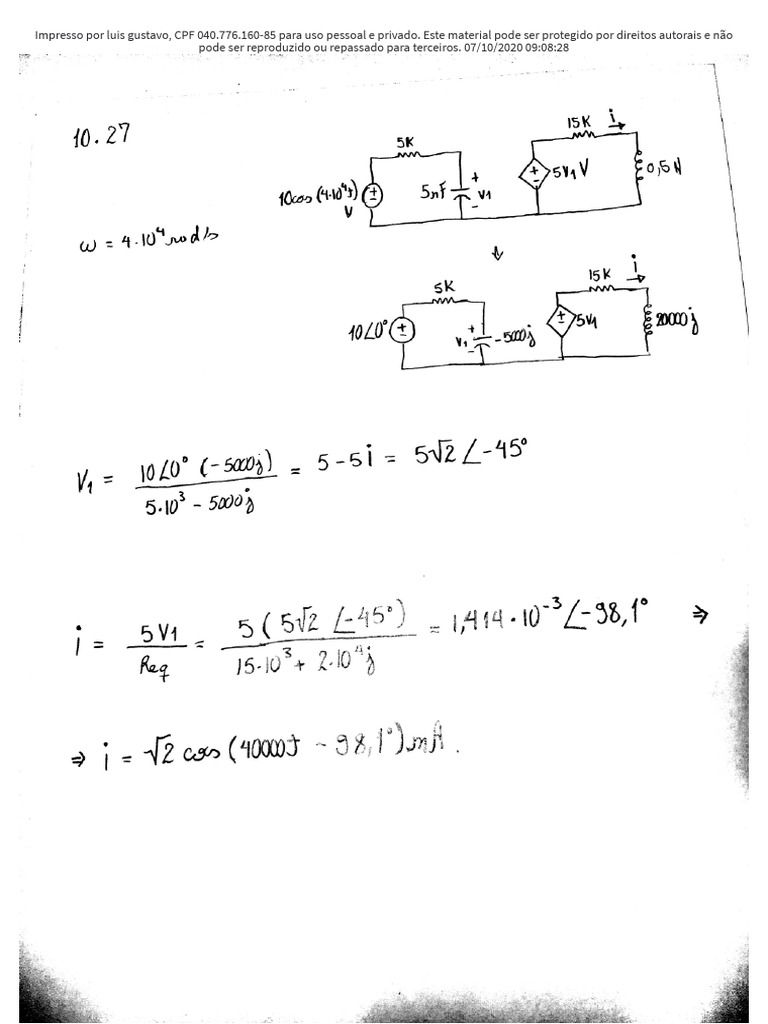 Impresso por luis gustavo, CPF 040.776.160-85 para uso pessoal e privado. Este material pode ser protegido por direitos autorais e não
pode ser reproduzido ou repassado para terceiros. 07/10/2020 09:08:28
10.27
5K
15K
i
10cos(4·10⁴t)
V
5nF
+
V1
-
5V1 V
0,5H
ω = 4·10⁴ rad/s
5K
15K
i
10∠0°
+
V1
-
-5000j
5V1
20000j
V1 = 10∠0° (-5000j) / 5·10³ - 5000j = 5-5i = 5√2 ∠-45°
i = 5V1 / Req = 5(5√2 ∠-45°) / 15·10³ + 2·10⁴j = 1,414·10⁻³∠-98,1° ⇒
⇒ i = √2 cos(40000t - 98,1°)mA.